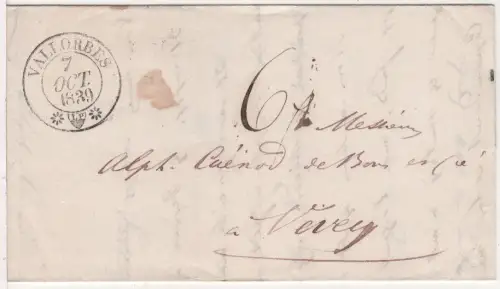 VALLORBES
7
OCT.
1839
6
Messieurs
Alph. Caénod de Bons et
à Vevey